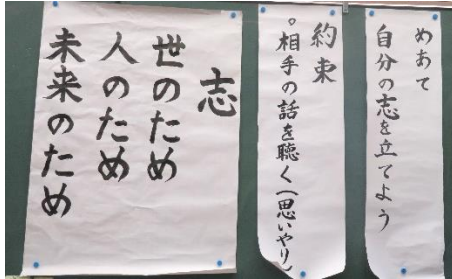 めあて
自分の志を立てよう
約束
。相手の話を聴く(思いやり)
志
世のため
人のため
未来のため